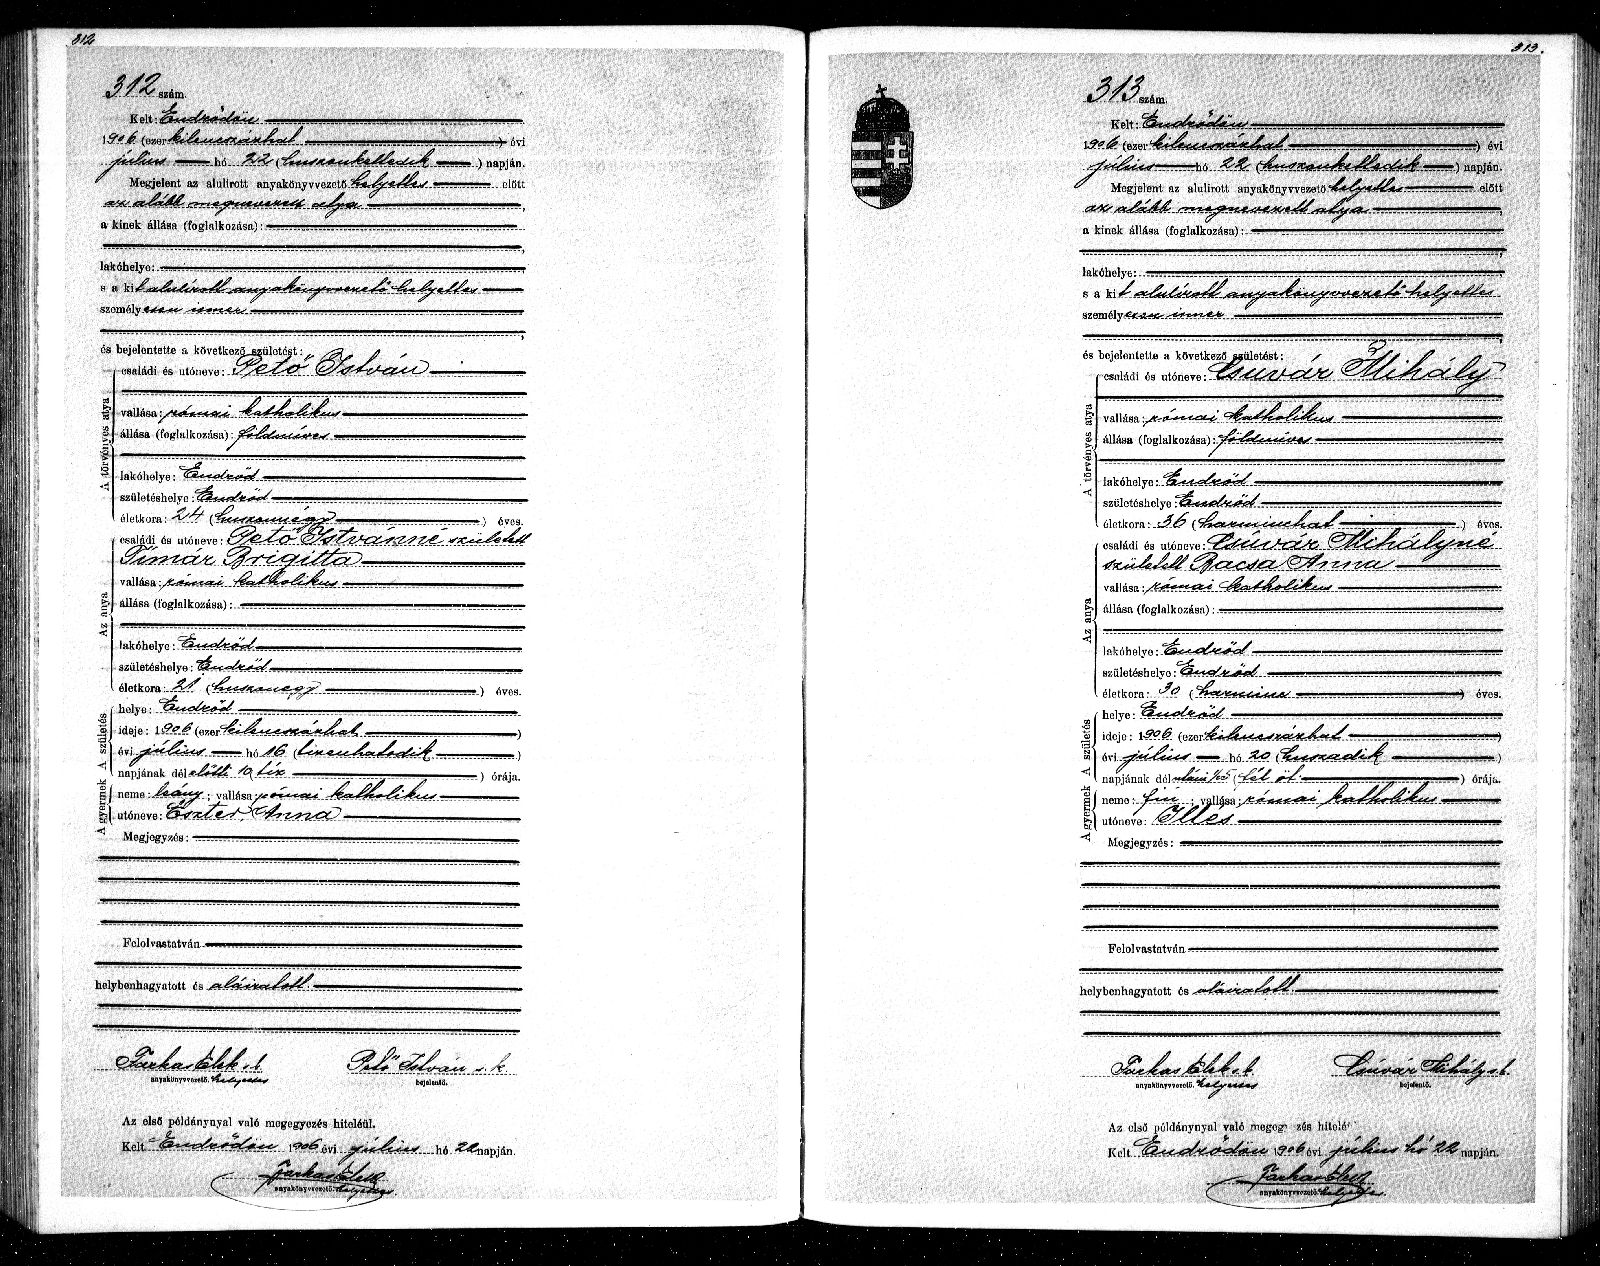 312
312 szám.
Kelt: Endrődön
1906 (ezer kilenczszázhat ) évi
július hó 22 (huszonkettedik ) napján.
Megjelent az alulirott anyakönyvvezető helyettes előtt
az alább megnevezett atya ,
a kinek állása (foglalkozása):
lakóhelye:
s a kit alulírott anyakönyvvezető helyettes
személyesen ismer
és bejelentette a következő születést:
A törvényes atya
családi és utóneve: Pető István
vallása: római katholikus
állása (foglalkozása): földmíves
lakóhelye: Endrőd
születéshelye: Endrőd
életkora: 24 (huszonnégy ) éves.
Az anya
családi és utóneve: Pető Istvánné született
Tímár Brigitta
vallása: római katholikus
állása (foglalkozása):
lakóhelye: Endrőd
születéshelye: Endrőd
életkora: 21 (huszonegy ) éves.
A születés
helye: Endrőd
ideje: 1906 (ezer kilenczszázhat )
évi július hó 16 (tizenhatodik )
napjának dél előtti 10 (tíz ) órája.
A gyermek
neme: leány; vallása: római katholikus
utóneve: Eszter, Anna
Megjegyzés:
Felolvastatván
helybenhagyatott és aláiratott.
Farkas Elek s. k. Pető István s. k.
anyakönyvvezető. helyettes bejelentő.
Az első példánynyal való megegyezés hiteléül.
Kelt Endrődön 1906 évi július hó 22 napján.
Farkas Elek
anyakönyvvezető. helyettes.
313.
313 szám.
Kelt: Endrődön
1906 (ezer kilenczszázhat ) évi
július hó 22 (huszonkettedik ) napján.
Megjelent az alulirott anyakönyvvezető helyettes előtt
az alább megnevezett atya ,
a kinek állása (foglalkozása):
lakóhelye:
s a kit alulírott anyakönyvvezető helyettes
személyesen ismer
és bejelentette a következő születést:
A törvényes atya
családi és utóneve: Csúvár Mihály
vallása: római katholikus
állása (foglalkozása): földmíves
lakóhelye: Endrőd
születéshelye: Endrőd
életkora: 36 (harminchat ) éves.
Az anya
családi és utóneve: Csúvár Mihályné
született Bacsa Anna
vallása: római katholikus
állása (foglalkozása):
lakóhelye: Endrőd
születéshelye: Endrőd
életkora: 30 (harmincz ) éves.
A születés
helye: Endrőd
ideje: 1906 (ezer kilenczszázhat )
évi július hó 20 (huszadik )
napjának dél utáni ½5 (fél öt ) órája.
A gyermek
neme: fiú ; vallása: római katholikus
utóneve: Illés
Megjegyzés:
Felolvastatván
helybenhagyatott és aláiratott.
Farkas Elek s. k. Csúvár Mihály s. k.
anyakönyvvezető. helyettes bejelentő.
Az első példánynyal való megegyezés hitelé
Kelt Endrődön 1906 évi július hó 22 napján.
Farkas Elek
anyakönyvvezető. helyettes.